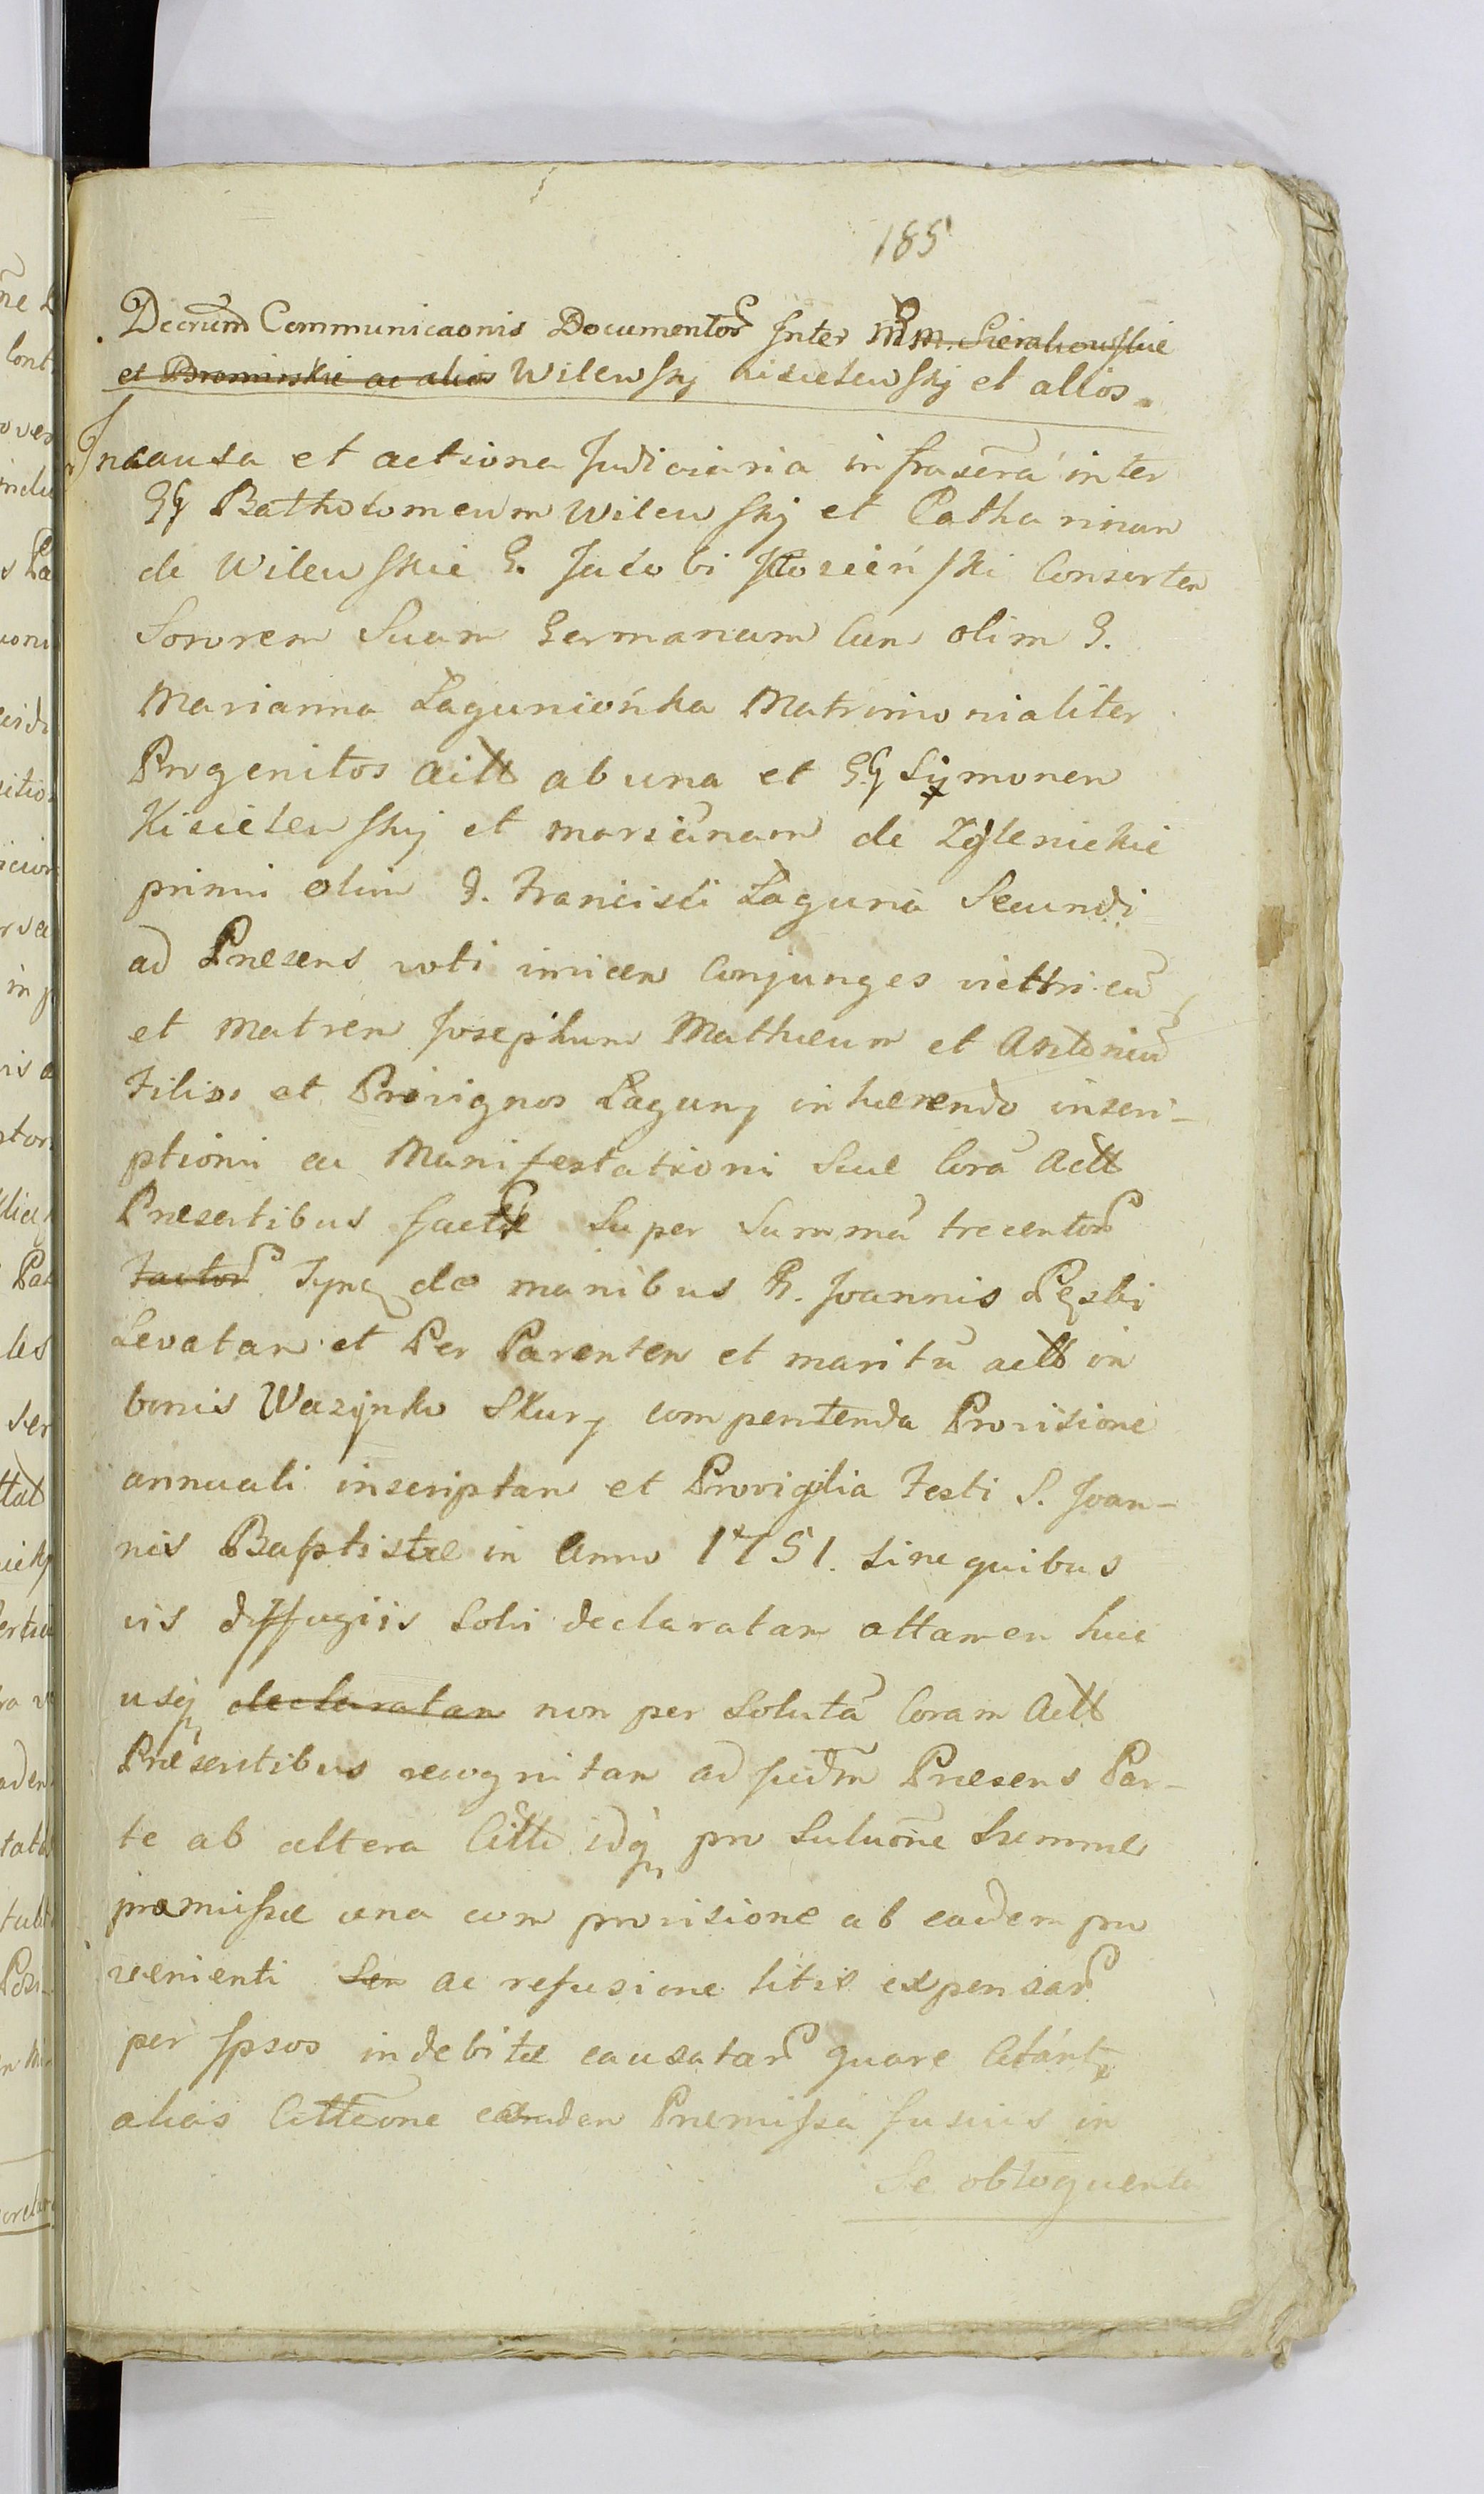 185
Decrūm Communicaonis Documentor Inter MM. Sierakowskie
et Bromirskie ac alios Wilewskj Kisielewskj et alios.
In causa et actione Judiciaria infrascrā inter
GG Batholomeum Wilewskj et Catharinan
de Wilewskie G. Jacobi Kłozieński Consorten
Sororem Suam Germanam Cun olim G.
Marianna Łagunionka Matrimonialiter
Progenitos actt ab una et GG Sijmonen
Kisielewskij et mariānam de Zglenickie
primi olim G. Francisci Łaguna Secundi
ad Præsens voti invicen Conjunges vittricū
et Matren Josephum Mathæum et Antoniū
Filios et Privignos Łaguny inhærendo inscri-
ptioni ac Manifestationi Suæ Corā Actt
Præsentibus factæ Super Summā trecentor
Factor Tynf de manibus R. Joannis Pęski
Levatan et Per Parenten et maritū actt in
bonis Wazynko Skury competenda Provisione
annuali inscriptan et Provigilia Festi S. Joan-
nis Baptistæ in Anno 1751. sine quibus
vis diffugiis Solvi declaratan attamen huc
usq declaratan non per Solutā Coram Actt
Præsentibus recognitan ad Judm Præsens Par-
te ab altera Citt idq pro Soluōne Summæ
præmissæ una cum provisione ab eadem pro
venienti Sen ac refusione litis expensar
per Ipsos indebitæ causatar quare Citānt
alias Citteōne eaden Præmissa fusius in
Se obloquente